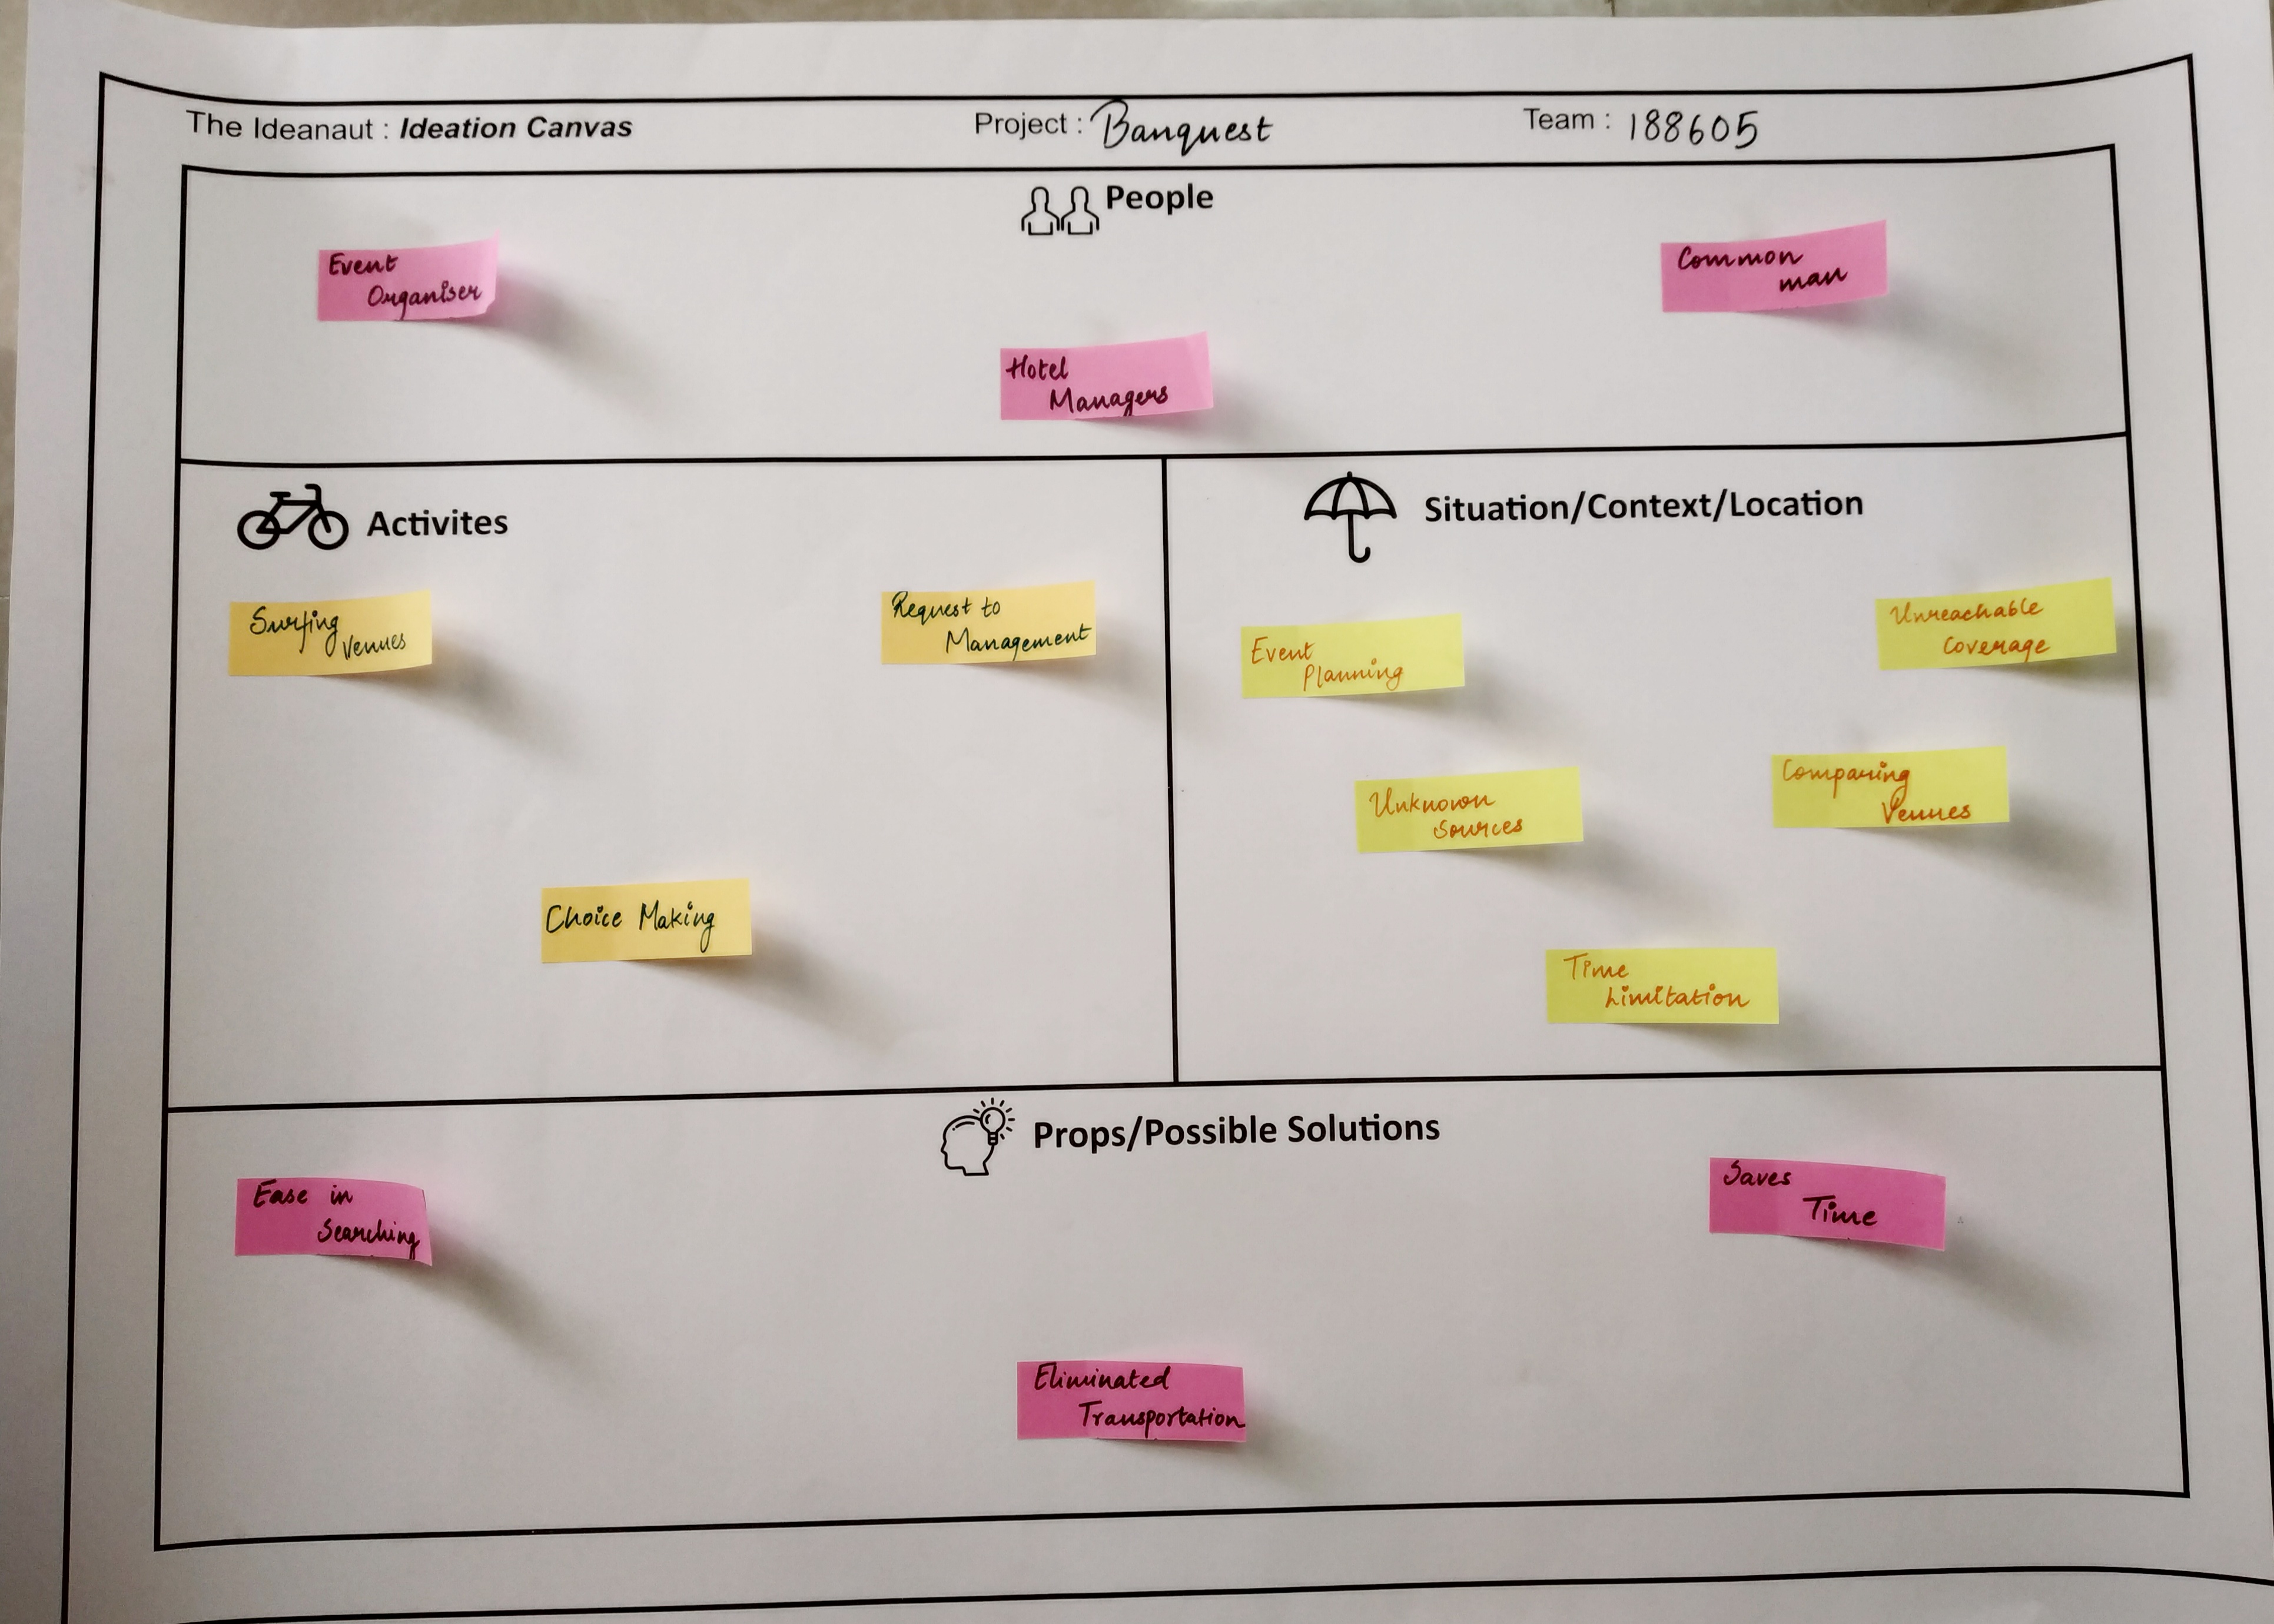 The Ideanaut : Ideation Canvas
Project : Banquest
Team : 188605
People
Event
Organiser
Hotel
Managers
Common
man
Activites
Surfing
Venues
Request to
Management
Choice Making
Situation/Context/Location
Event
Planning
Unreachable
Coverage
Unknown
Sources
Comparing
Venues
Time
Limitation
Props/Possible Solutions
Ease in
Searching
Eliminated
Transportation
Saves
Time